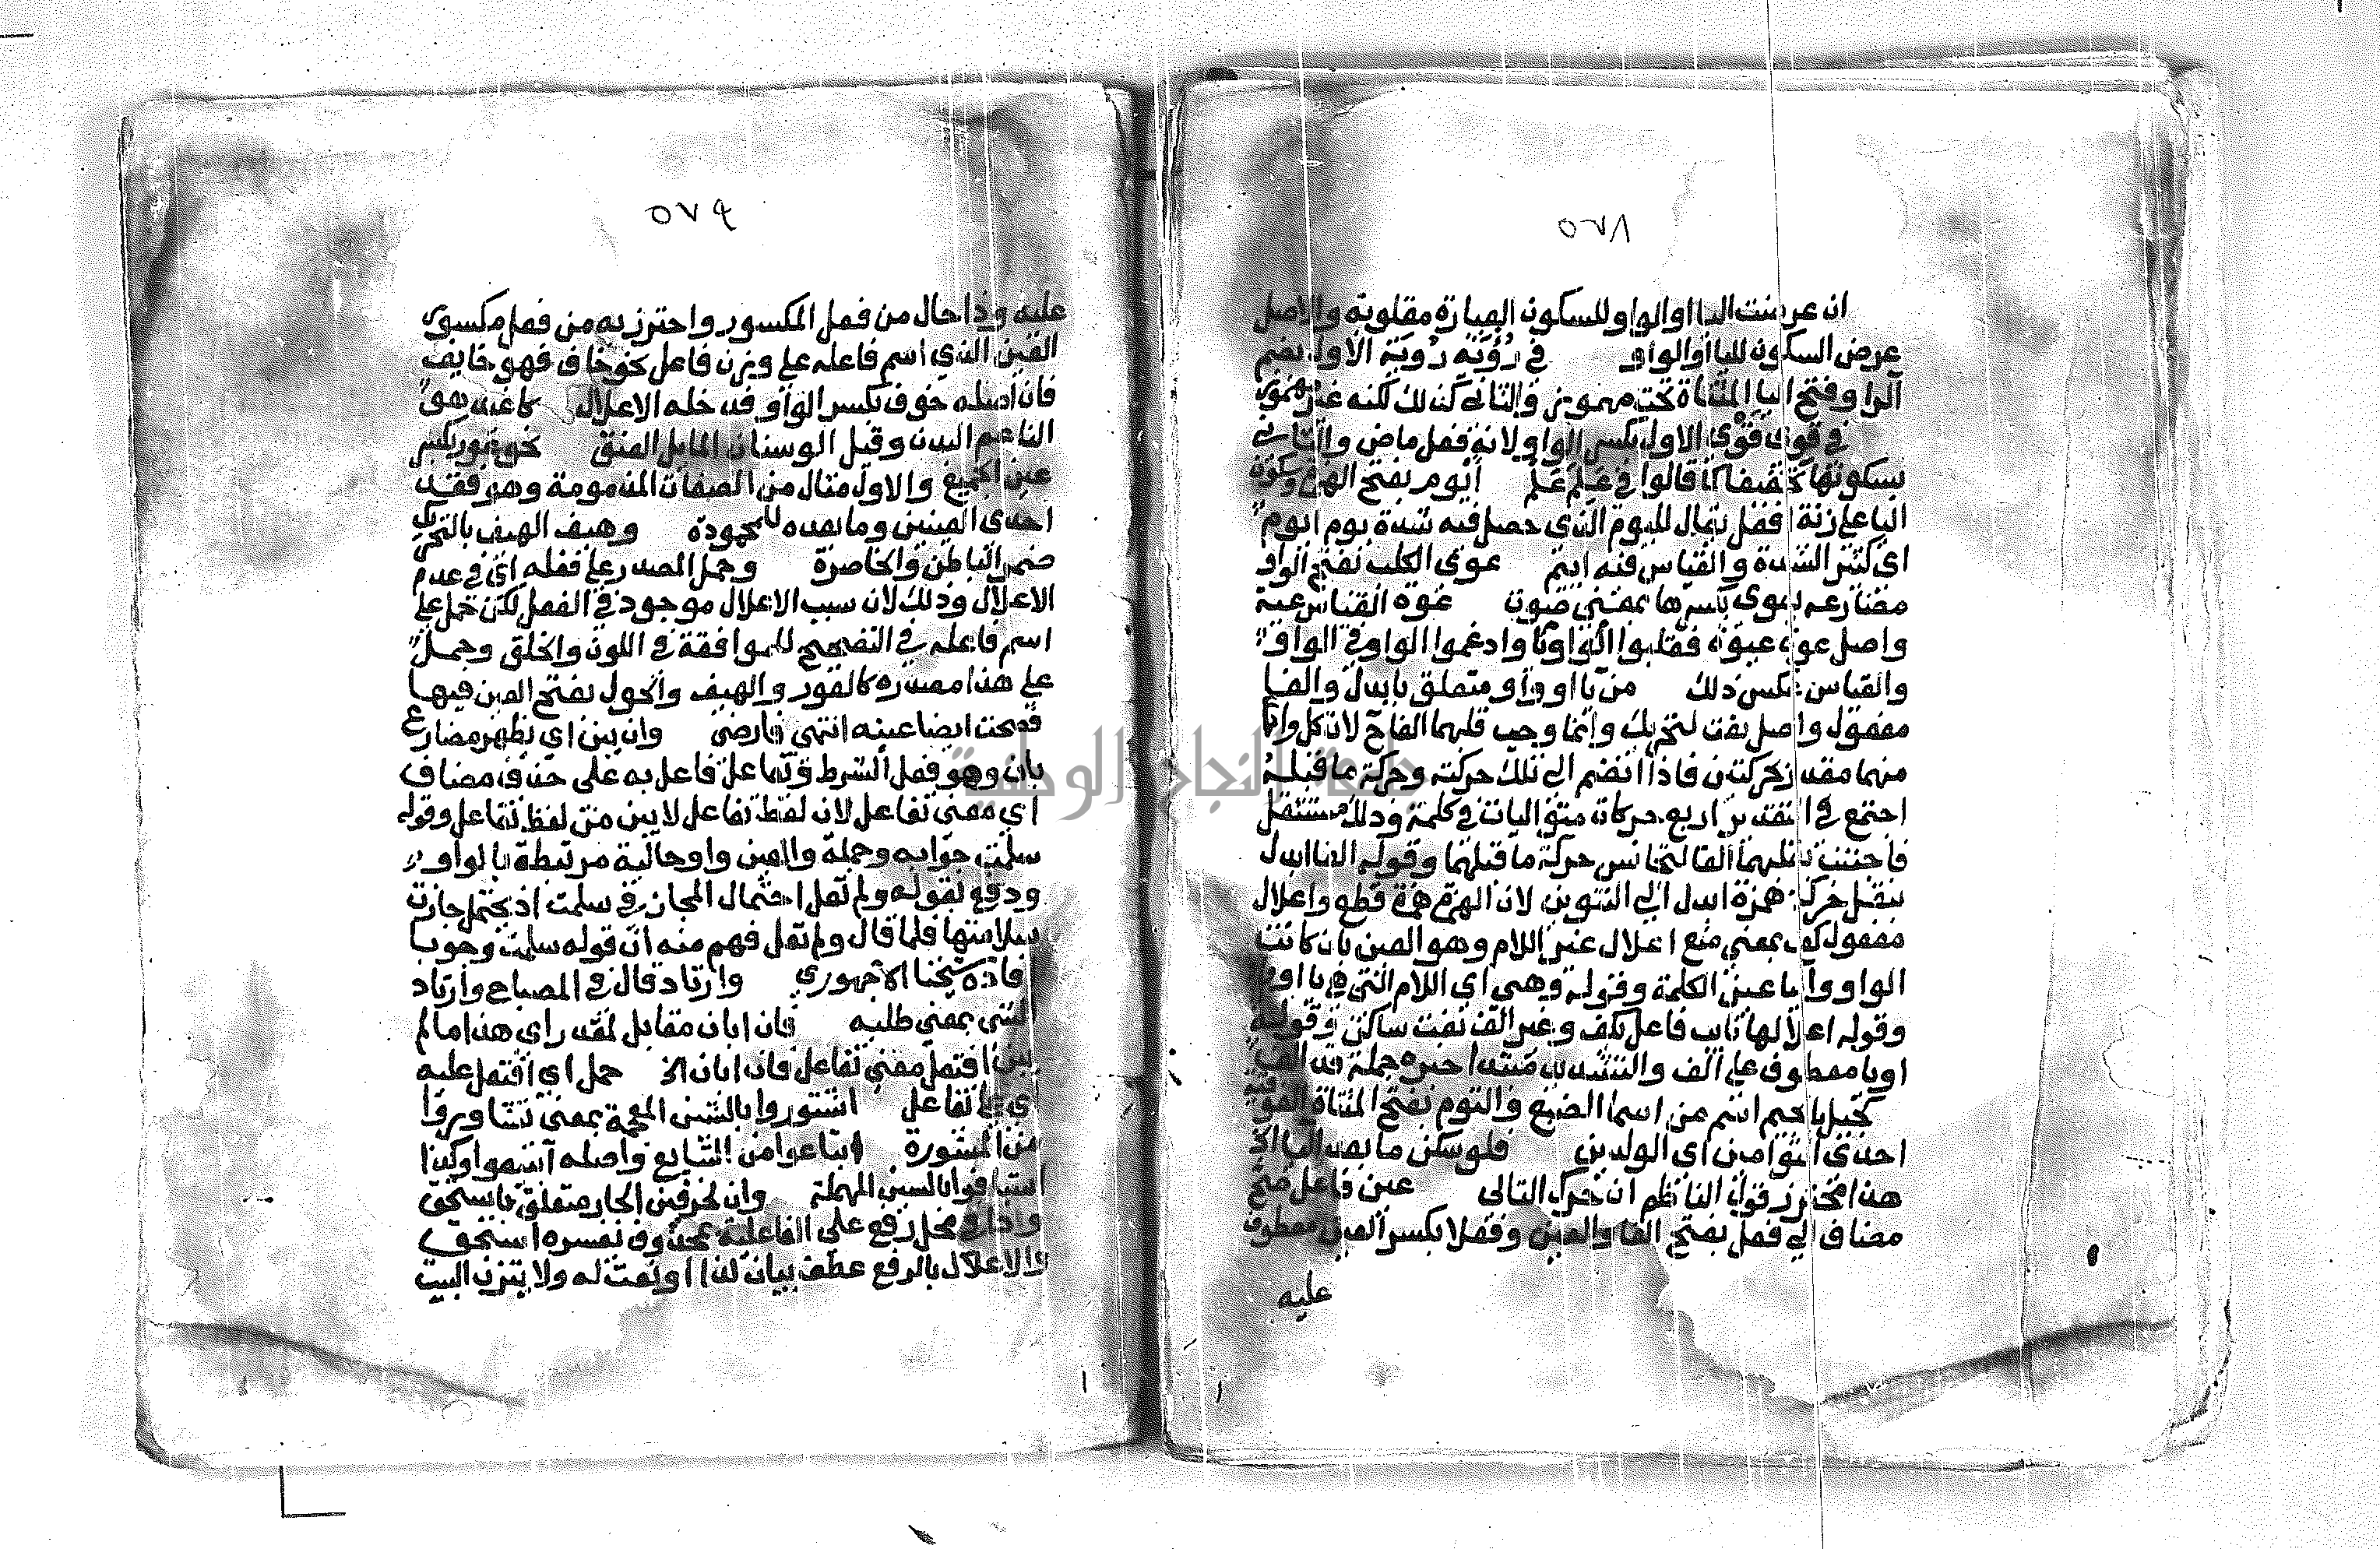 ٥٧٨
ان عرضت اليا او الواو للسكون العبارة مقلوبة والاصل
عرض السكون لليا او الواو في رُؤْيَة رُويَة الاول بضم
الرا وفتح اليا المثناة تحت مهموز والثاني كذلك لكنه غير مهموز
في قوى قَوْىَ الاول بكسر الواو ولانه فعل ماض والثاني
بسكونها تخفيفا كما قالوا في عَلِمَ عَلْمَ أيْوم بفتح الهمزة وسكون
اليا على زنة افعل يقال لليوم الذي حصل فيه شدة يوم ايوم
اي كثير الشدة والقياس فيه ايم عوى الكلب بفتح الواو
مضارعه يعوى بكسرها بمعنى صوت عوة القياس عية
واصل عوة عيوة فقلبوا الواو وادغموا الواو في الواو
والقياس عكس ذلك من يا او واو متعلق بابدل والفا
مفعول واصل بفت لتحريك وانما وجب قلبهما الفا ح لان كل وا
منهما مقدر بحركتين فاذا انضم الى تلك حركته وحركة ما قبله
اجتمع في التقدير اربع حركات متواليات في كلمة وذلك مستثقل
فاجتنب بقلبهما الفا لتجانس حركة ما قبلهما وقوله الفا ابدل
بنقل حركة همزة ابدل الى التنوين لان الهمزة همزة قطع واعلال
مفعول كف بمعنى منع اعلال غير اللام وهو العين بان كانت
الواو واليا عين الكلمة وقوله وهى اى اللام التي في يا او
وقوله اعلالها نائب فاعل يكف وغير الف نعت ساكن وقوله
او يا معطوف على الف والتشديد مبتدا خبره جملة قد الف
كخيل يا جيم اسم من اسما الضبع والتوم بفتح المثناة الفوقية
احدى التوامين اى الولدين فلو سكن ما بعد اليا الخ
هذا محترز قول الناظم ان حرك التالى عين فاعل صح
مضاف الي فعل بفتح الفا والعين وفعلا بكسر العين معطوف
عليه
٥٧٩
عليه وذا حال من فعل المكسور واحترز به من فعل مكسور
العين الذي اسم فاعله على وزن فاعل نحو خاف فهو خايف
فان اصله خوف بكسر الواو فدخله الاعلال كاغيد هو
الناعم البدن وقيل الوسنان المايل العنق نحو عور بكسر
عين الجميع والاول مثال من الصفات المذمومة وهو فقد
احدى العينين وما بعده للمحمودة وهيف الهيف بالتحريك
ضمر الباطن والخاصرة وحمل المصدر على فعله اي في عدم
الاعلال وذلك لان سبب الاعلال موجود في الفعل لكن حمل على
اسم فاعله في التصحيح للموافقة في اللون والخلق وحمل
على هذا مصدره كالعور والهيف والحول بفتح العين فيها
فصحت ايضا عينه انتهى فارضى وان يبن اي يظهر مضارع
بان وهو فعل الشرط وتفاعل فاعل به على حذف مضاف
اي معنى تفاعل لان لفظ تفاعل لا يبين من لفظ تفاعل وقوله
سلمت جوابه وجملة والعين واو حالية مرتبطة بالواو
ودفع بقوله ولم تعل احتمال المجاز في سلمت اذ يحتمل جازت
سلامتها فلما قال ولم تعل فهم منه ان قوله سلمت وجوبا
فاده شيخنا الاجهوري وارتاد قال في المصباح وارتاد
الشى بمعنى طلبه فان ابان مقابل لمقدر اي هذا ما لم
يبن افتعل معنى تفاعل فان ابان الخ حمل اي افتعل عليه
اي على تفاعل اشتوروا بالشين المعجمة بمعنى تشاوروا
من المشورة ابتاعوا من التبايع واصله
استافوا بالسين المهملة وان لحرفين الجار متعلق باستحق
وذا في محل رفع على الفاعلية بمحذوف يفسره استحق
والاعلال بالرفع عطف بيان لذا او نعت له ولا يتزن البيت